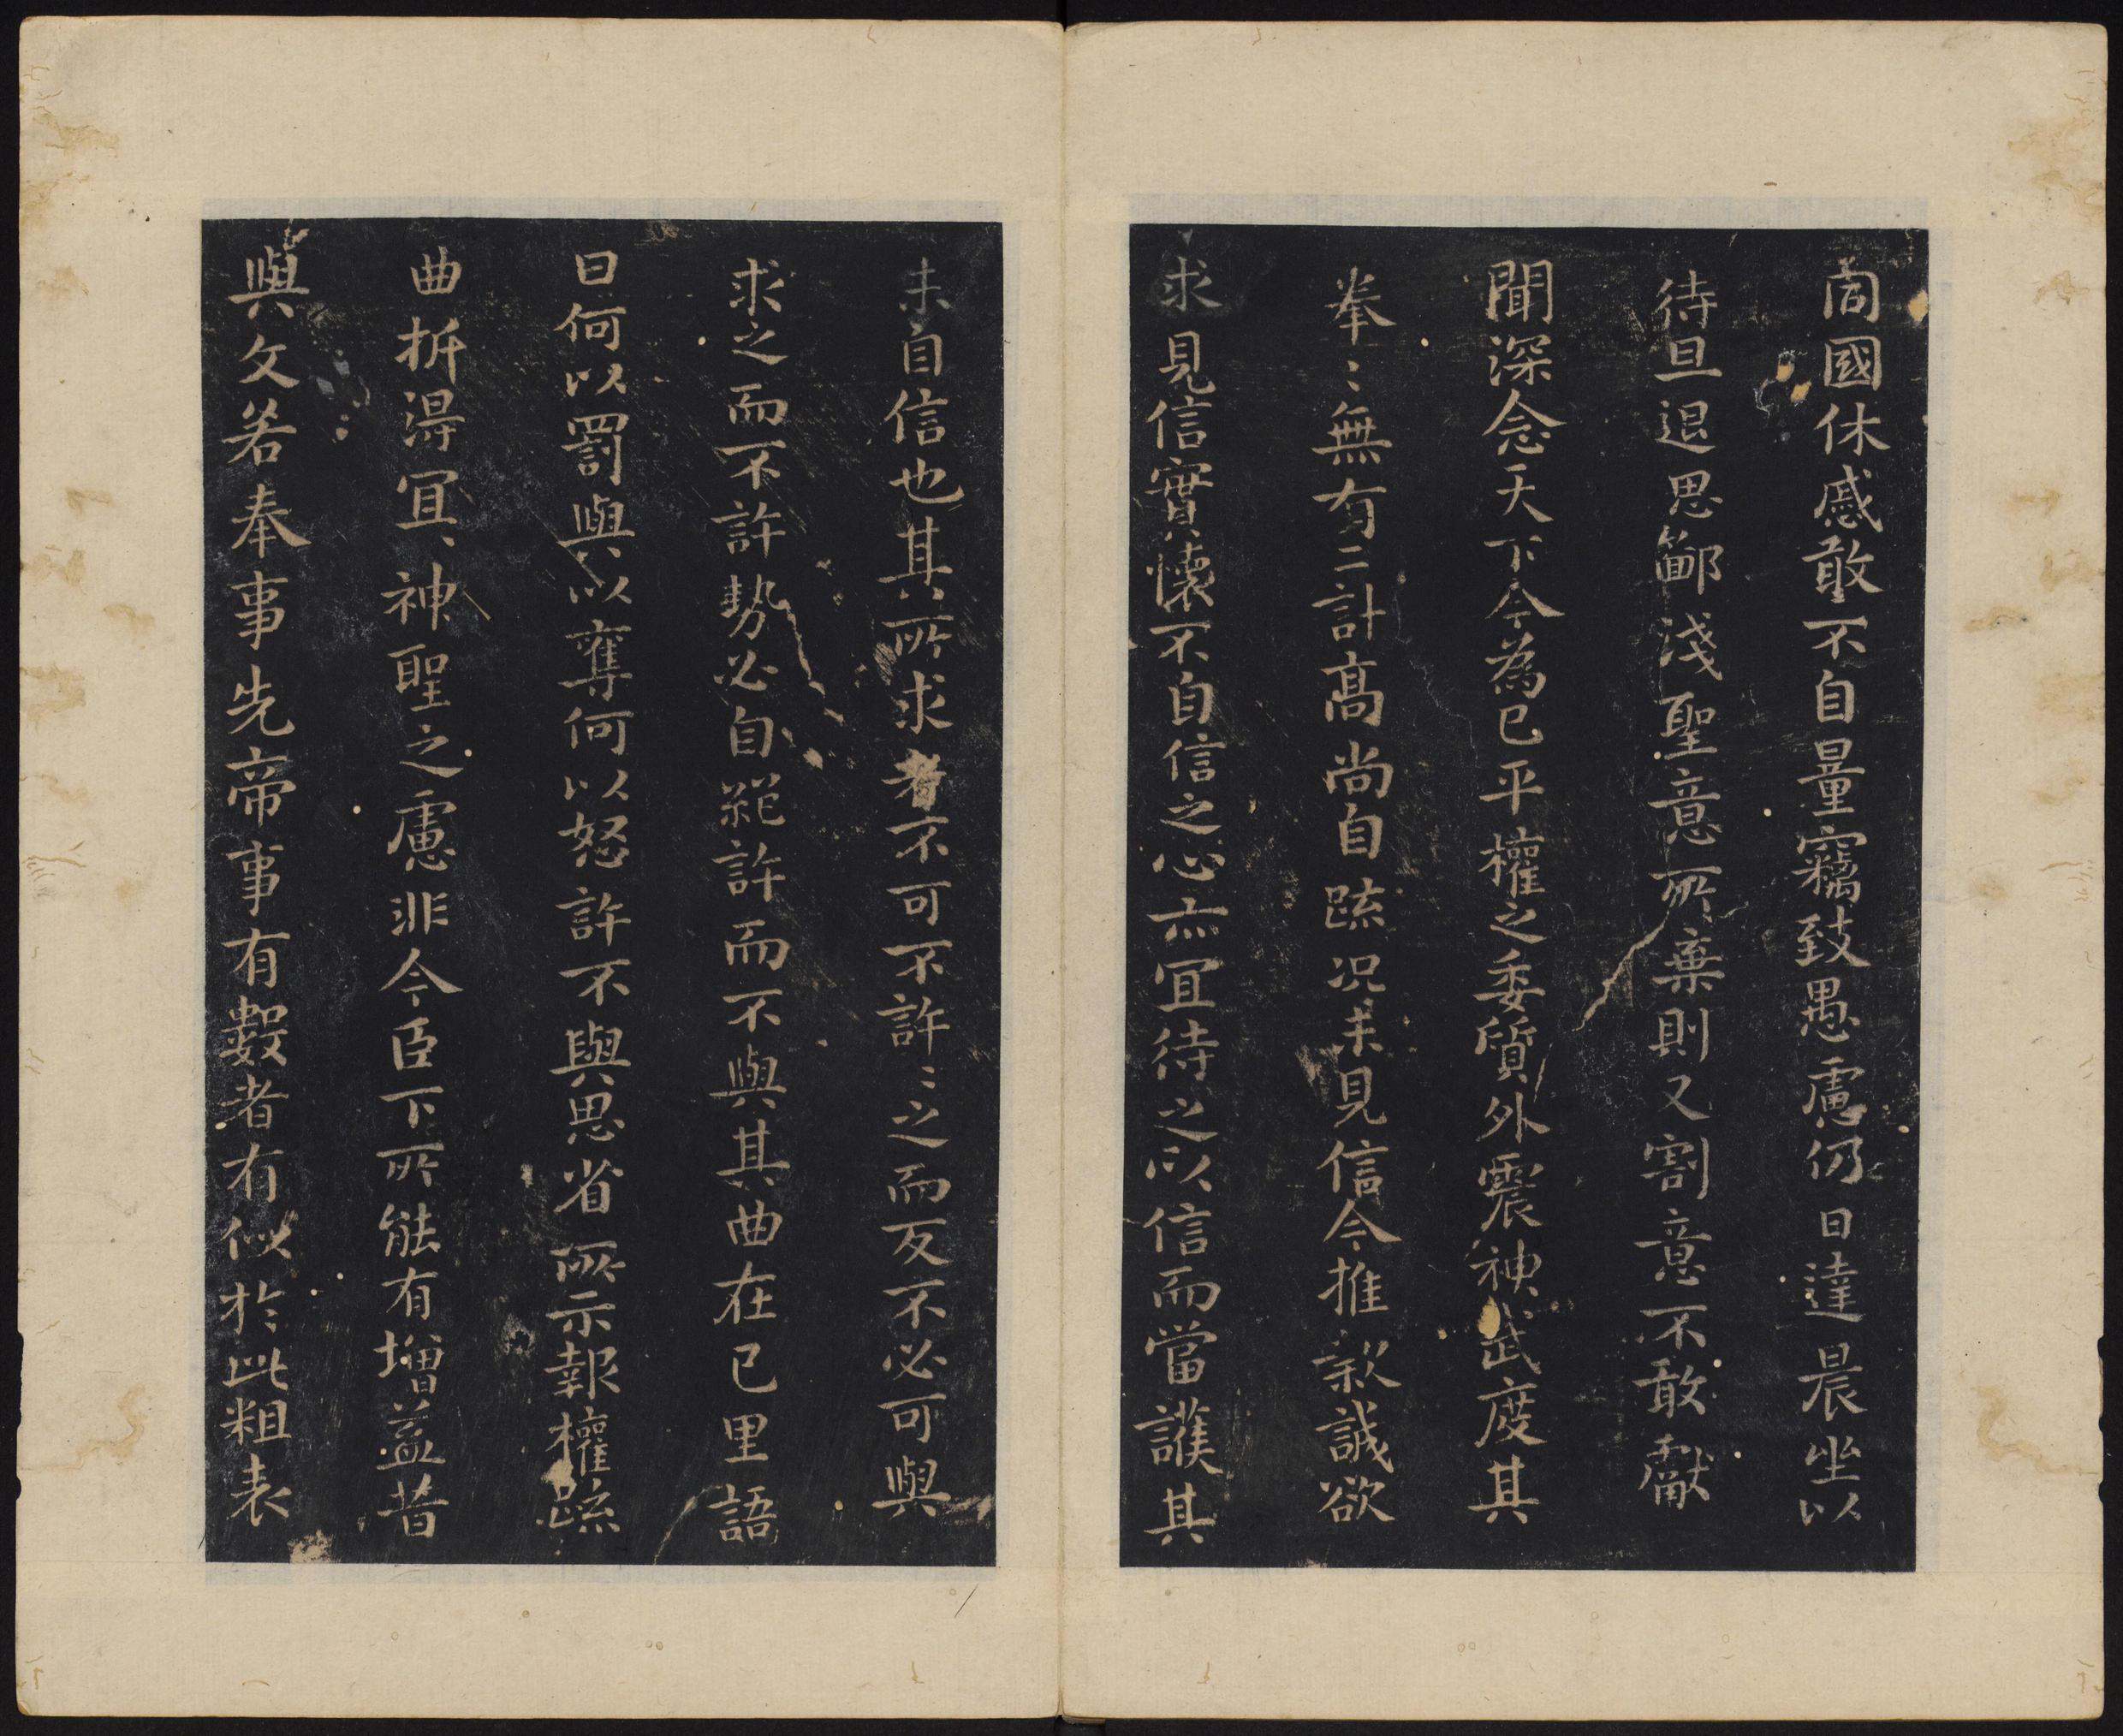 同國休慼敢不自量竊致愚慮仍日達晨坐以
待旦退思鄙淺聖意所棄則又割意不敢獻
聞深念天下今為已平權之委質外震神武度其
拳〻無有二計高尚自疏況未見信今推款誠欲
求見信實懷不自信之心亦宜待之以信而當護其
未自信也其所求者不可不許〻之而反不必可與
求之而不許勢必自絕許而不與其曲在已里語
曰何以罰與以奪何以怒許不與思省所示報權疏
曲折得宜宜神聖之慮非今臣下所能有增益昔
與文若奉事先帝事有數者有似於此粗表